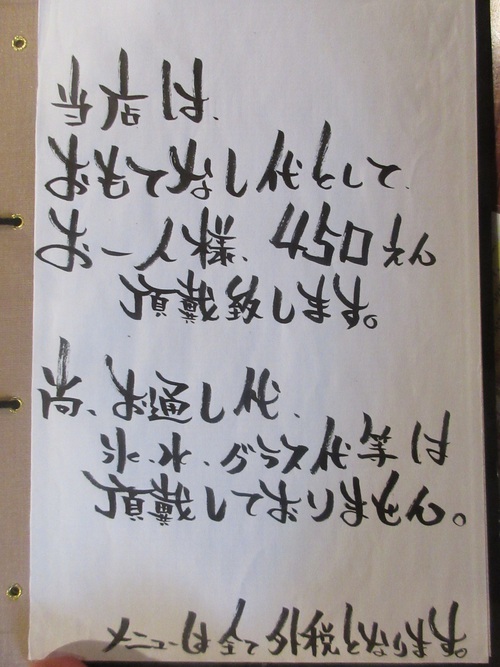 当店は、
おもてなし代として、
お一人様、450えん
頂戴致します。
尚、お通し代、
氷、水、グラス代等は
頂戴しておりません。
メニューは全て外税となります。